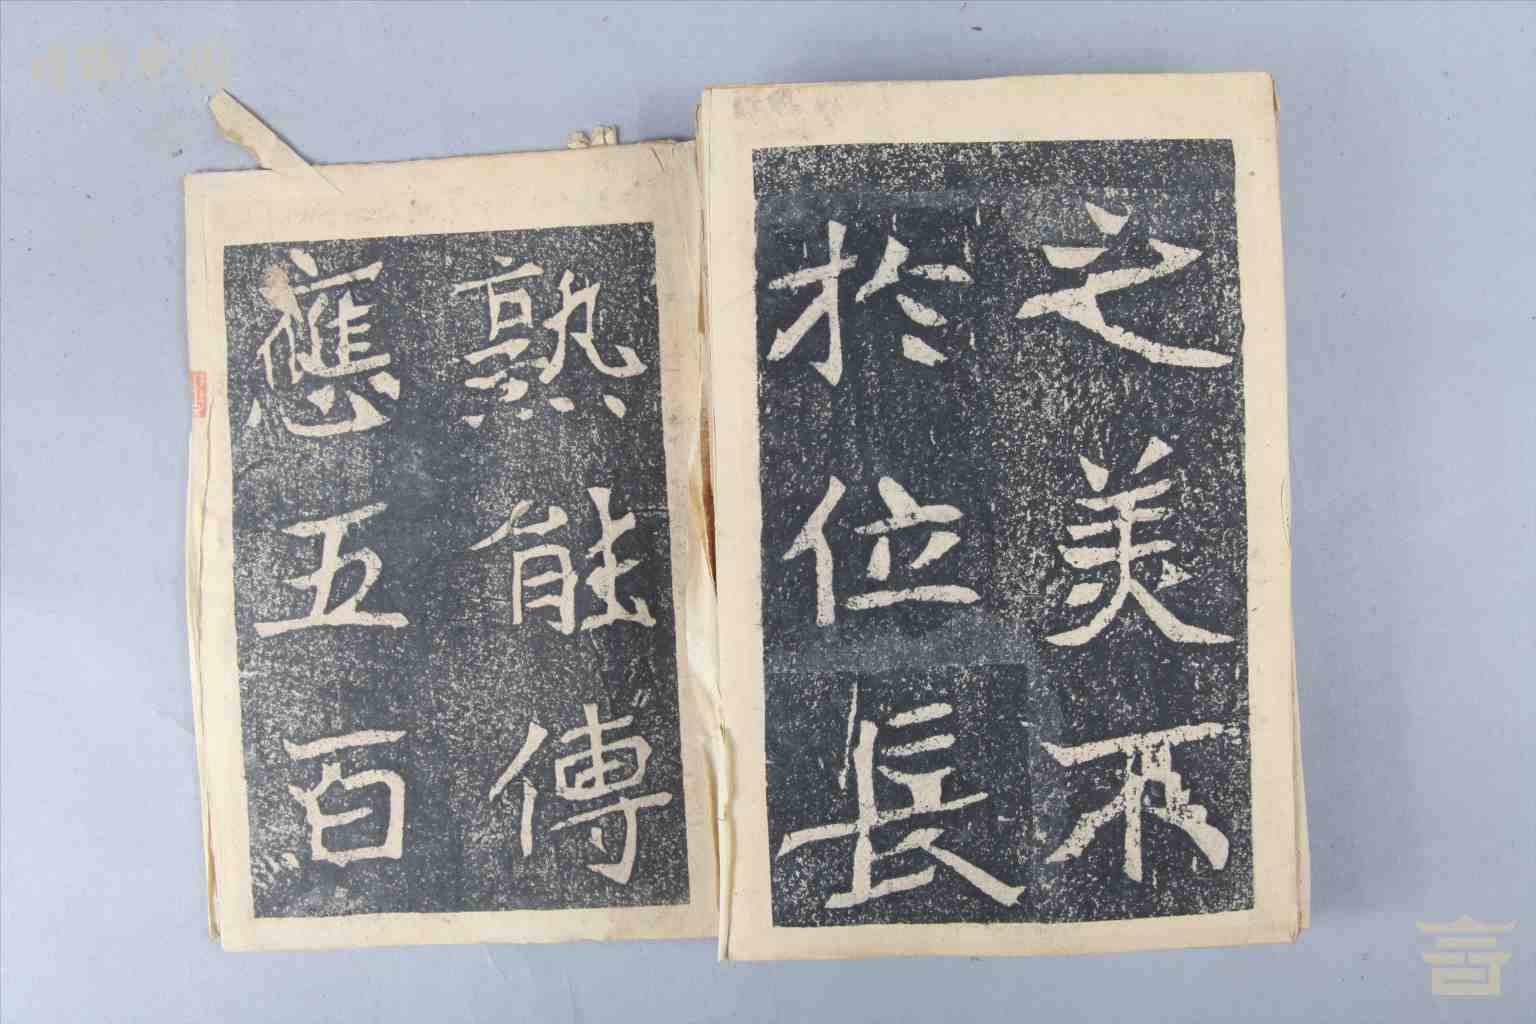 之美不
於位長
熟能傳
應五百